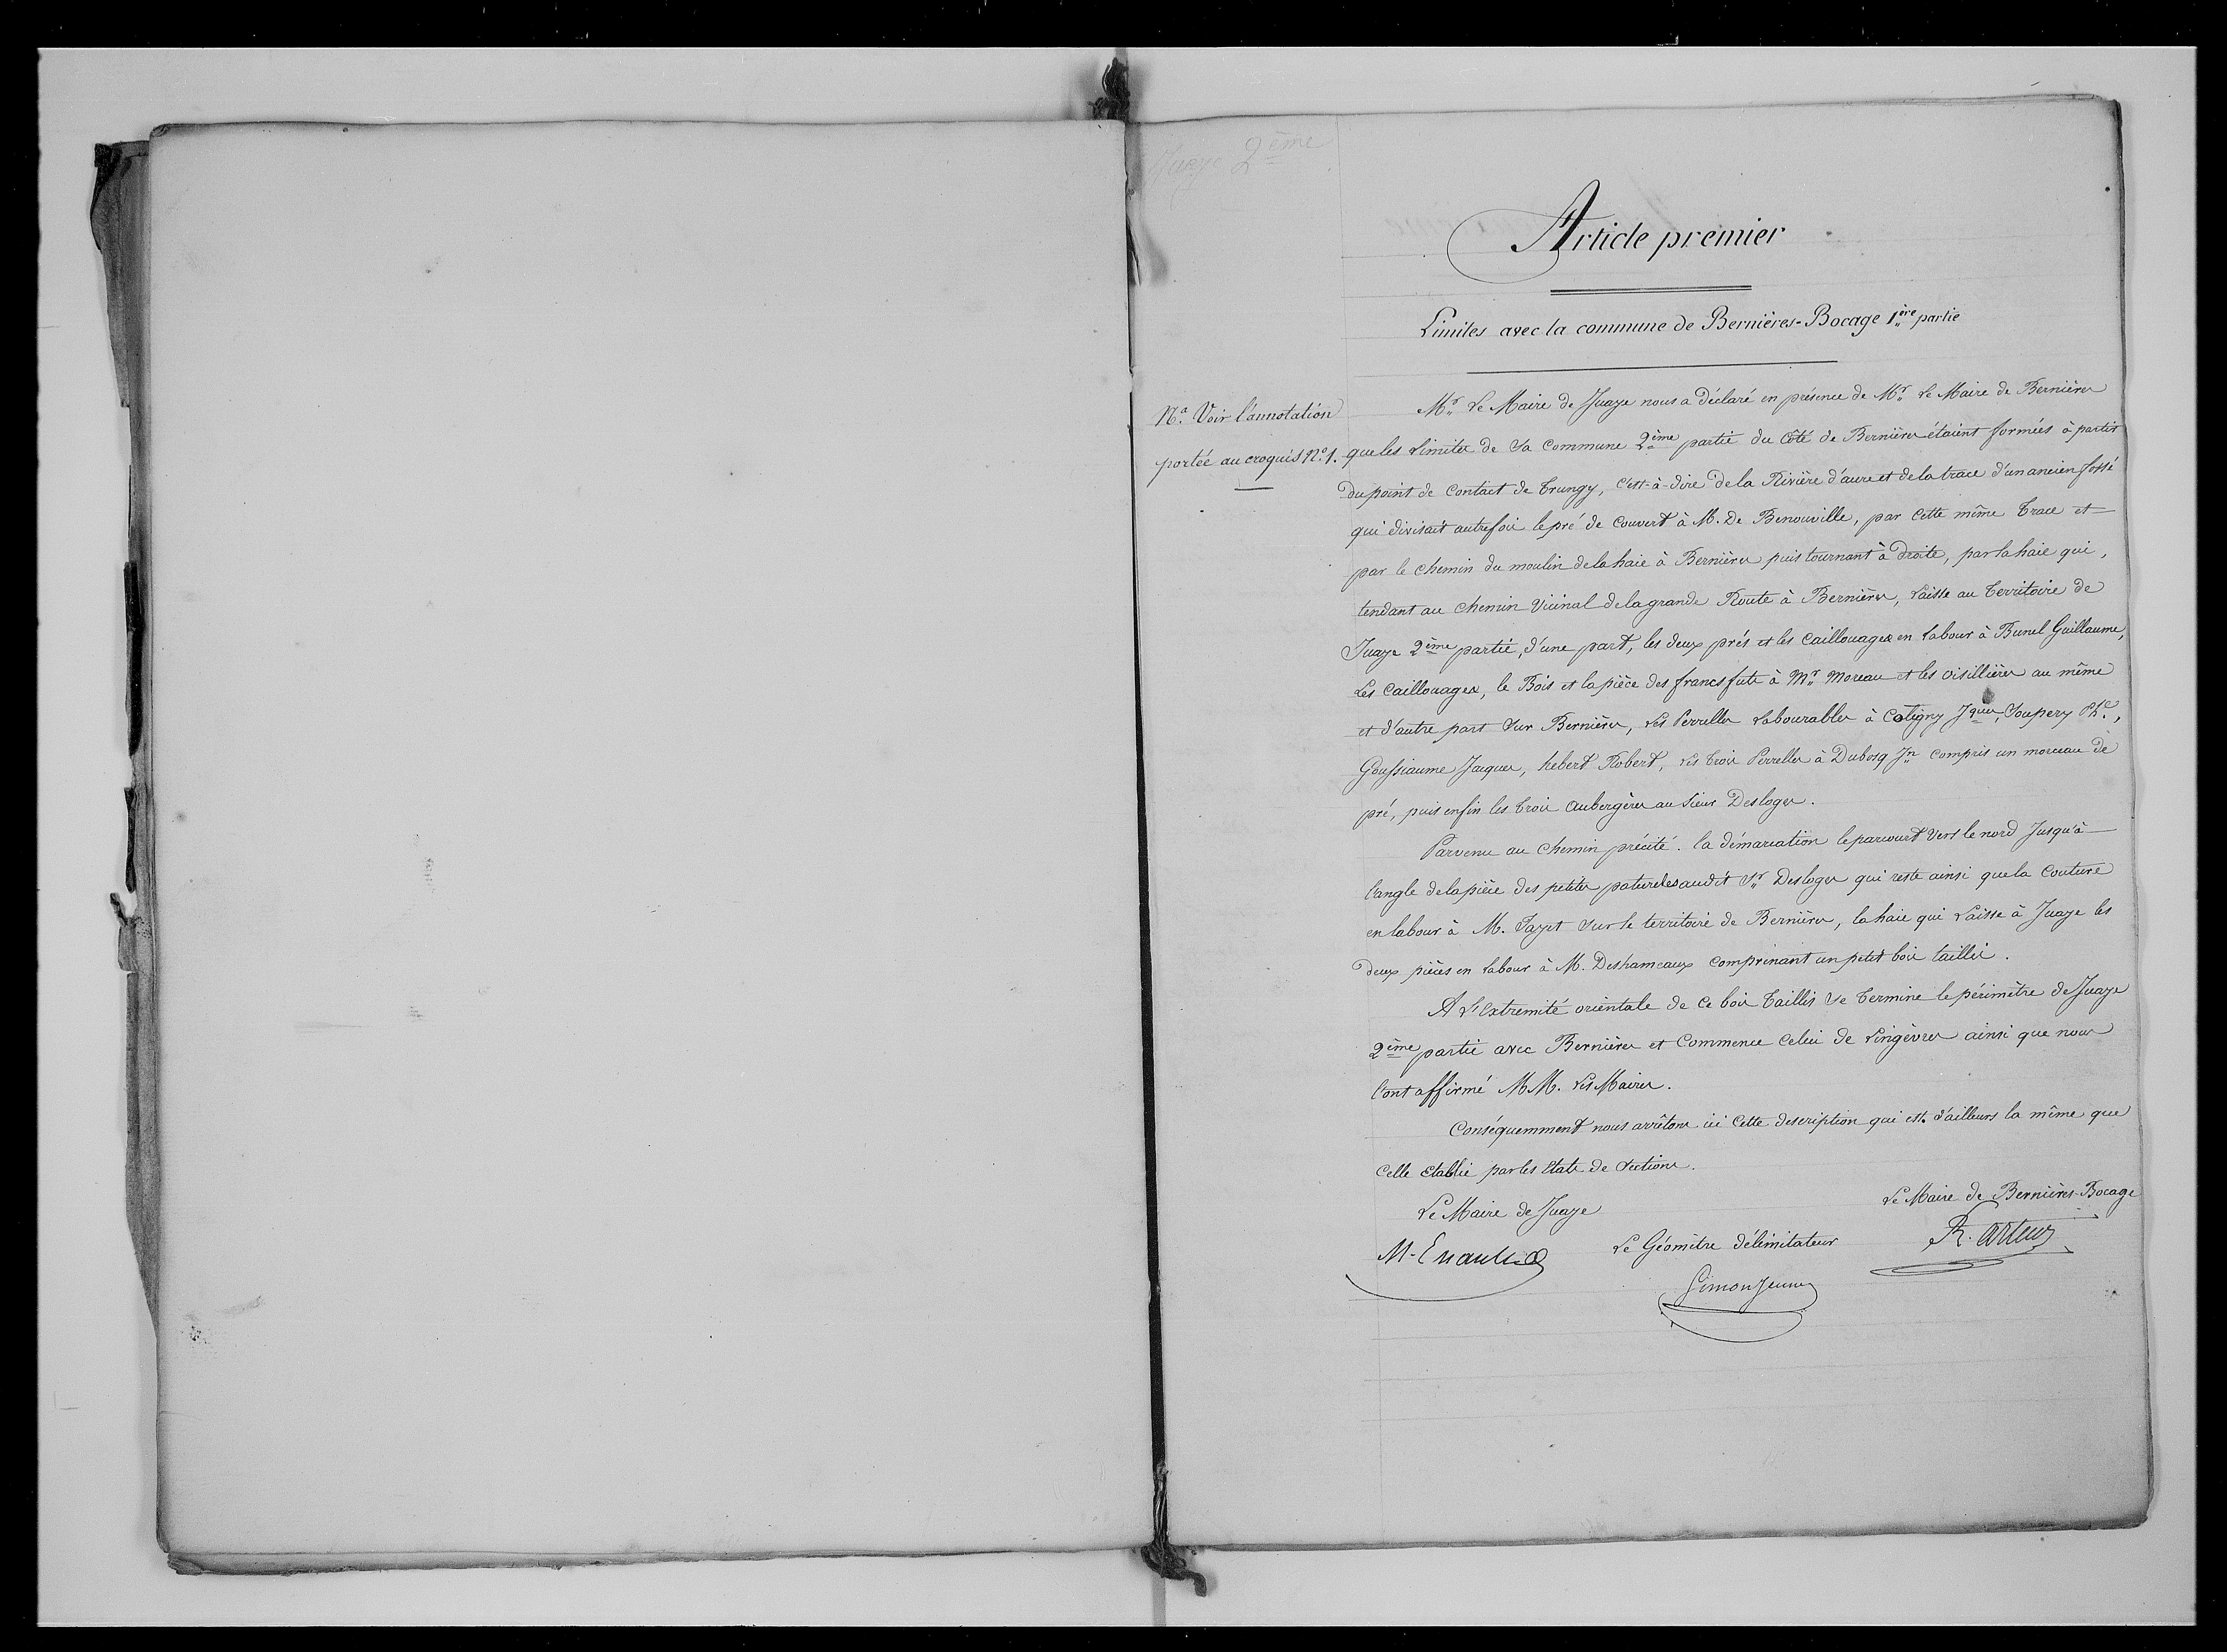 Juaye 2ème
Article premier
Limites avec la commune de Bernières-Bocage 1ère partie
Na. Voir l'annotation
portée au croquis No. 1.
Mr. Le Maire de Juaye nous a déclaré en présence de Mr. Le Maire de Bernières
que les Limites de Sa Commune 2ème partie du Côté de Bernières étaient formées à partir
du point de Contact de Trungy, c'est-à-dire de la Rivière d'aure et de la trace d'un ancien fossé
qui divisait autrefois le pré de Couvert à M. De Benouville, par Cette même Trace et
par le chemin du moulin de la haie à Bernières puis tournant à droite, par la haie qui,
tendant au chemin Vicinal de la grande Route à Bernières, Laisse au Territoire de
Juaye 2ème partie, d'une part, les deux prés et les Caillouages en Labour à Bunel Guillaume,
Les Caillouages, le Bois et la pièce des francs futs à Mr. Moreau et les Oisillières au même
et d'autre part Sur Bernières, Les Perrelles Labourables à Coligny Jques, Soupery Phe.,
Goussiaume Jacques, hebert Robert, Les trois Perrelles à Dubosq Jn Compris un morceau de
pré, puis enfin les trois Aubergères au Sieur Desloges.
Parvenu au Chemin précité. la démarcation le parcourt Vers le nord Jusqu'à
l'angle de la pièce des petites patureles audit Sr. Desloges qui reste ainsi que la Couture
en labour à M. Fayet Sur le territoire de Bernières, la haie qui Laisse à Juaye les
deux pièces en Labour à M. Deshameaux Comprenant un petit bois taillis.
A L'Extremité orientale de Ce bois Taillis Se Termine le périmètre de Juaye
2ème partie avec Bernières et Commence Celui de Lingèvres ainsi que nous
l'ont affirmé MM. Les Maires.
Conséquemment nous arrêtons ici Cette description qui est d'ailleurs la même que
Celle Etablie par les Etats de Sections.
Le Maire de Juaye
Le Maire de Bernières-Bocage
M. Enault
Le Géomètre délimitateur
R. Arteur
Simon Jeune